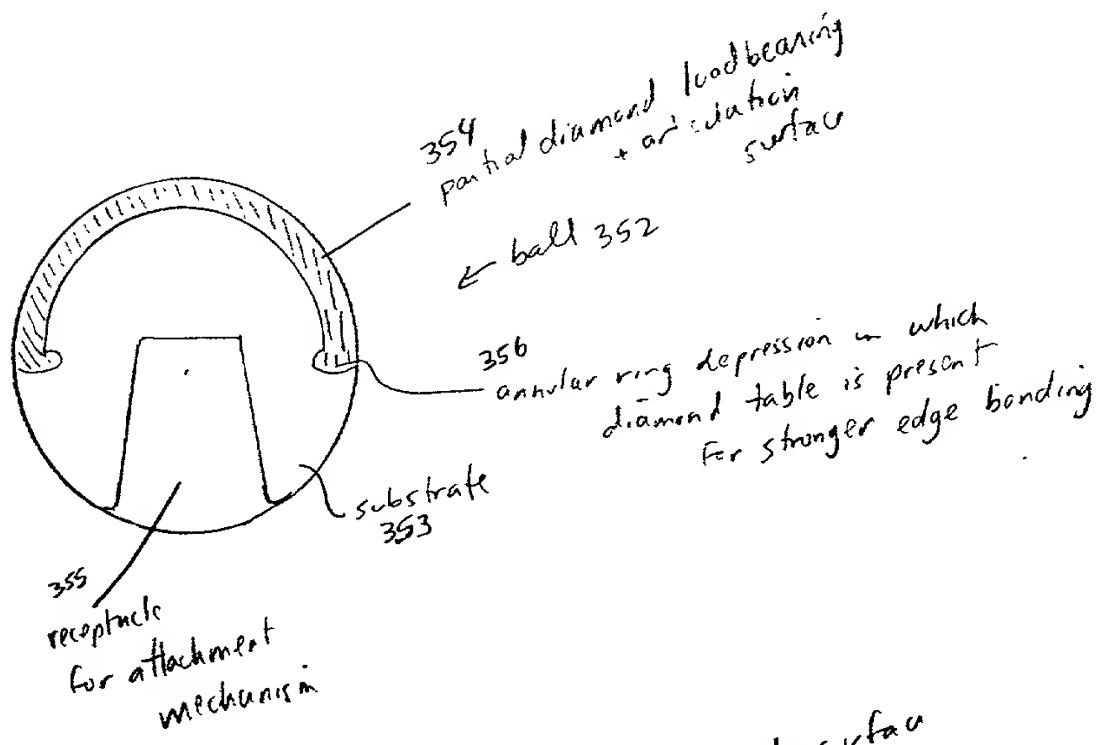 354
partial diamond loadbearing
+ articulation
surface
← ball 352
356
annular ring depression in which
diamond table is present
for stronger edge bonding
substrate
353
355
receptacle
for attachment
mechanism
surface